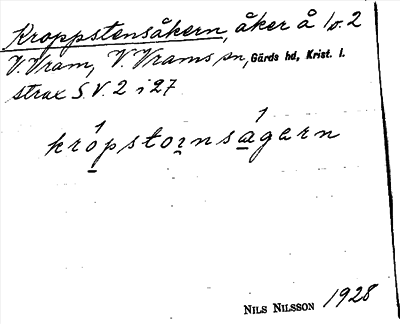 Kroppstensåkern, åker å 1 o. 2
V. Vram, V. Vrams sn, Gärds hd, Krist. l.
strax S.V. 2 i 27
krópstoɪnságərn
NILS NILSSON 1928